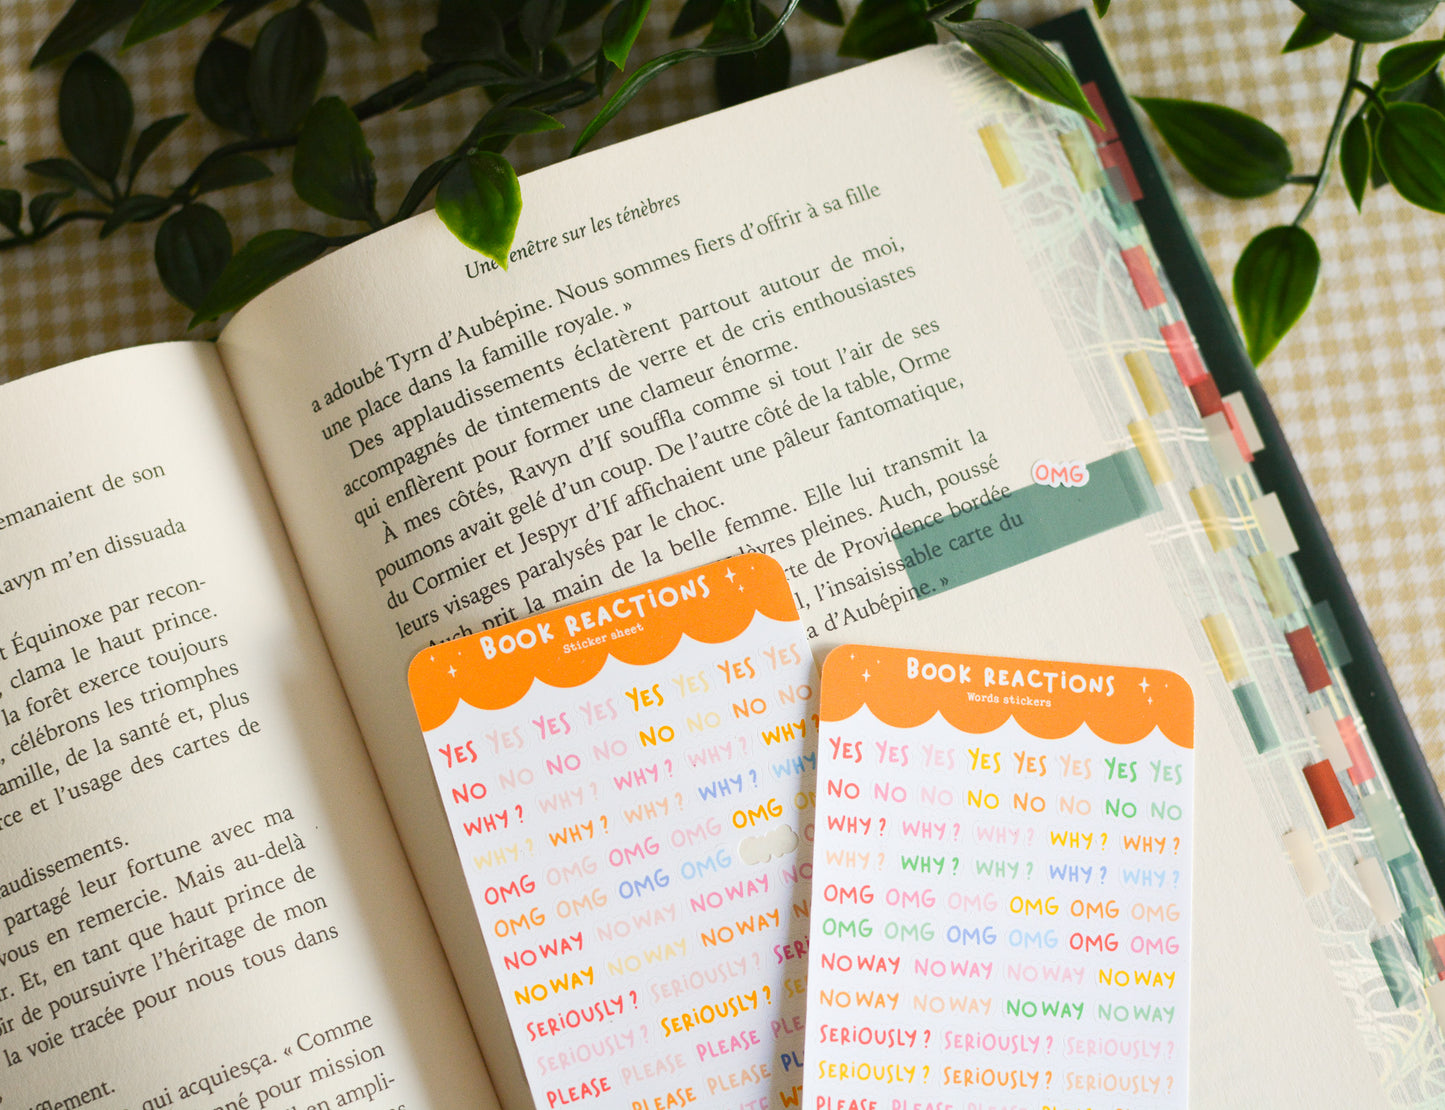 emanaient de son
avyn m'en dissuada
Équinoxe par recon-
, clama le haut prince.
la forêt exerce toujours
, célébrons les triomphes
amille, de la santé et, plus
rce et l'usage des cartes de
audissements.
partagé leur fortune avec ma
vous en remercie. Mais au-delà
r. Et, en tant que haut prince de
oir de poursuivre l'héritage de mon
la voie tracée pour nous tous dans
flement.
qui acquiesça. « Comme
né pour mission
en ampli-
Une fenêtre sur les ténèbres
a adoubé Tyrn d'Aubépine. Nous sommes fiers d'offrir à sa fille
une place dans la famille royale. »
Des applaudissements éclatèrent partout autour de moi,
accompagnés de tintements de verre et de cris enthousiastes
qui enflèrent pour former une clameur énorme.
À mes côtés, Ravyn d'If souffla comme si tout l'air de ses
poumons avait gelé d'un coup. De l'autre côté de la table, Orme
du Cormier et Jespyr d'If affichaient une pâleur fantomatique,
leurs visages paralysés par le choc.
Auch prit la main de la belle femme. Elle lui transmit la
lèvres pleines. Auch, poussé
rte de Providence bordée
l, l'insaisissable carte du
a d'Aubépine. »
OMG
BOOK REACTIONS
Sticker sheet
YES YES YES YES YES YES YES YES
NO NO NO NO NO NO NO NO
WHY? WHY? WHY? WHY? WHY?
WHY? WHY? WHY? WHY? WHY
OMG OMG OMG OMG OMG
OMG OMG OMG OMG
NO WAY NO WAY NO WAY NO
NO WAY NO WAY NO WAY
SERIOUSLY? SERIOUSLY? SERI
SERIOUSLY? SERIOUSLY?
PLEASE PLEASE PLEASE PLE
PLEASE PLEASE
BOOK REACTIONS
Words stickers
YES YES YES YES YES YES YES YES
NO NO NO NO NO NO NO NO
WHY? WHY? WHY? WHY? WHY?
WHY? WHY? WHY? WHY? WHY?
OMG OMG OMG OMG OMG OMG
OMG OMG OMG OMG OMG OMG
NO WAY NO WAY NO WAY NO WAY
NO WAY NO WAY NO WAY NO WAY
SERIOUSLY? SERIOUSLY? SERIOUSLY?
SERIOUSLY? SERIOUSLY? SERIOUSLY?
PLEASE PLEASE PLEASE PLEASE PLEASE